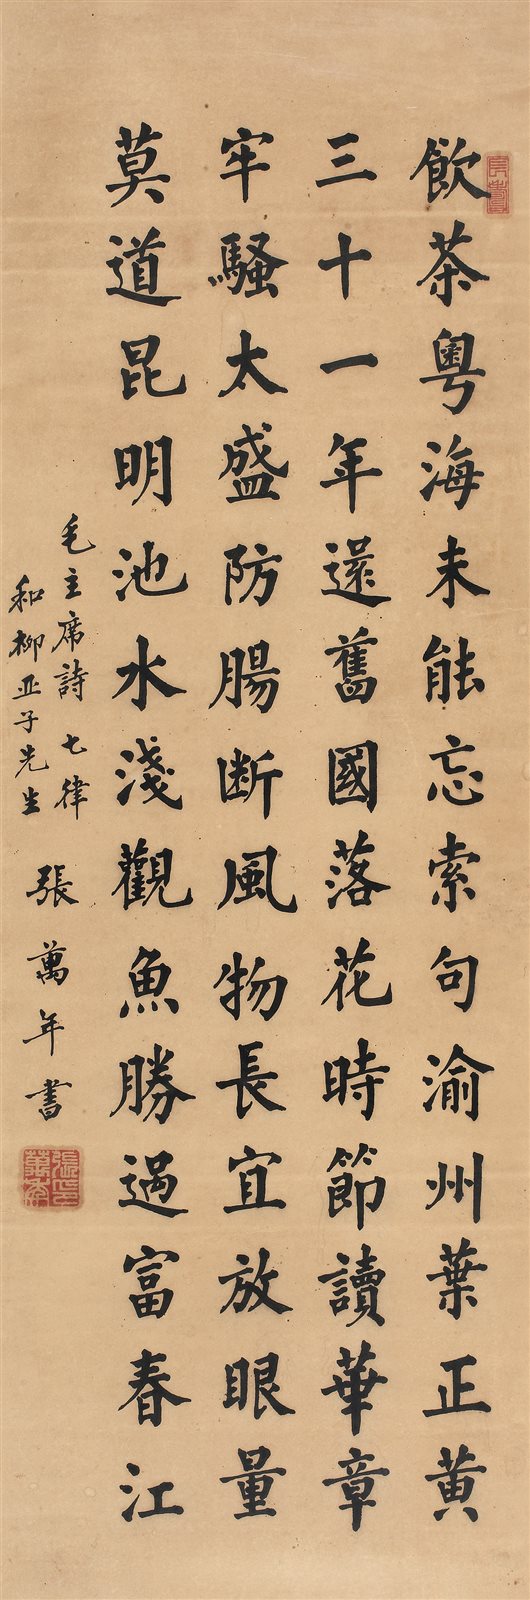 飲茶粤海未能忘索句渝州葉正黄
三十一年還舊國落花時節讀華章
牢騷太盛防腸断風物長宜放眼量
莫道昆明池水淺觀魚勝過富春江
毛主席詩七律
和柳亚子先生
張萬年書